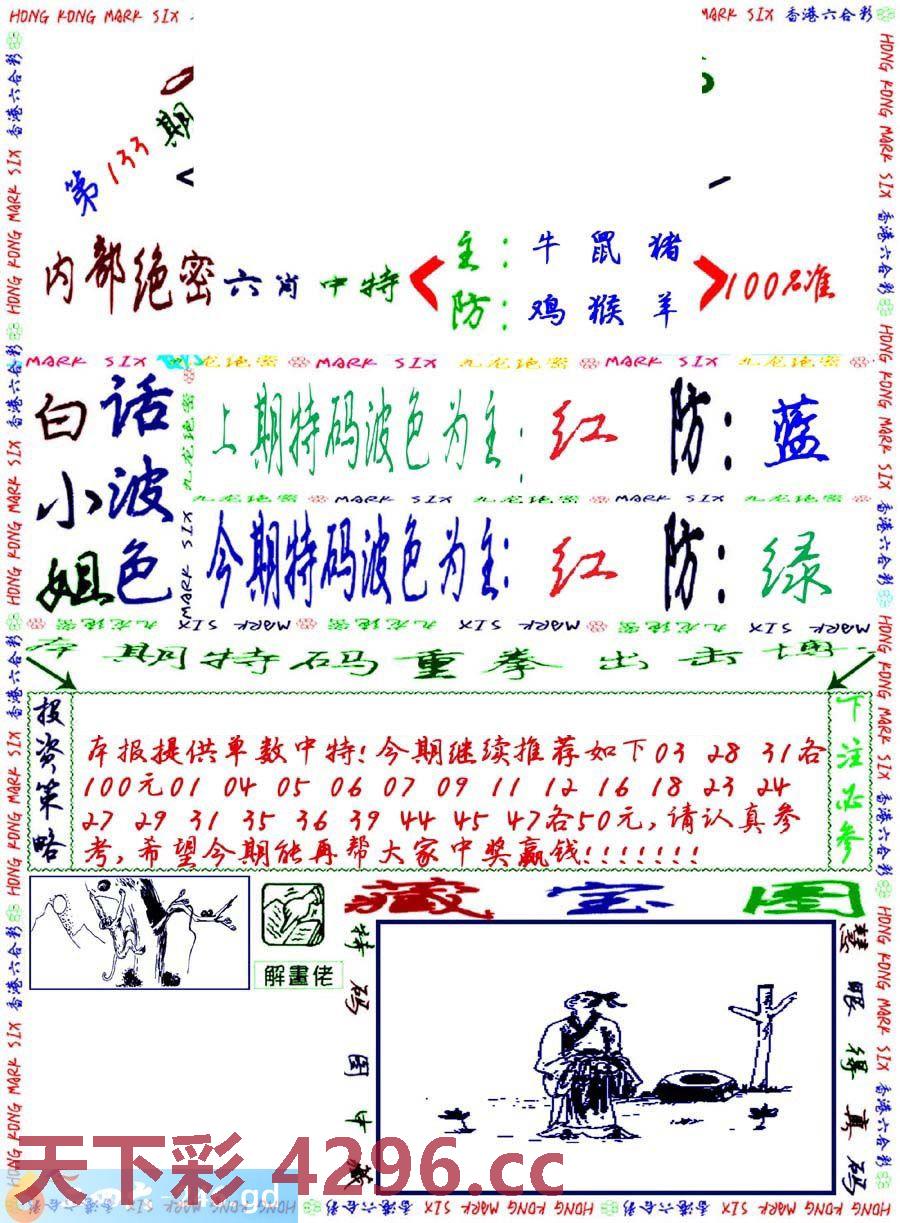 HONG KONG MARK SIX
MARK SIX 香港六合彩
第133期
内部绝密六肖中特
主：牛 鼠 猪
防：鸡 猴 羊
100%准
MARK SIX 九龙绝密 MARK SIX 九龙绝密 MARK SIX 九龙绝密
白话
小波
姐色
上期特码波色为主：红 防：蓝
九龙绝密 MARK SIX 九龙绝密 MARK SIX 九龙绝密
今期特码波色为主：红 防：绿
本期特码重拳出击
投资策略
本报提供单数中特！今期继续推荐如下03 28 31各
100元01 04 05 06 07 09 11 12 16 18 23 24
27 29 31 35 36 39 44 45 47各50元，请认真参
考，希望今期能再帮大家中奖赢钱！！！！！！！
下注必参
解畫佬
藏宝图
特码图中藏
慧眼得真码
天下彩 4296.cc